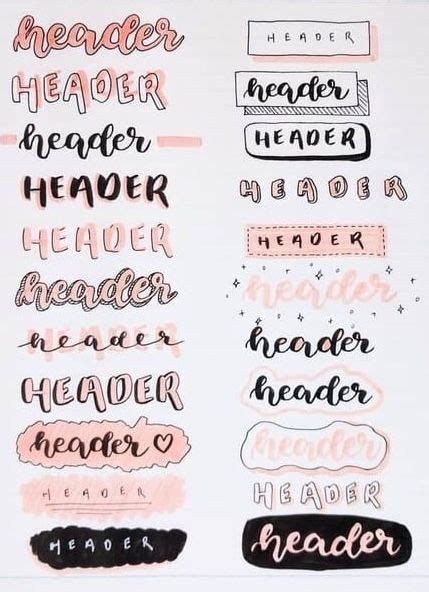 header
HEADER
header
HEADER
HEADER
header
header
HEADER
header ♡
HEADER
HEADER
HEADER
header
HEADER
HEADER
HEADER
header
header
header
header
HEADER
header